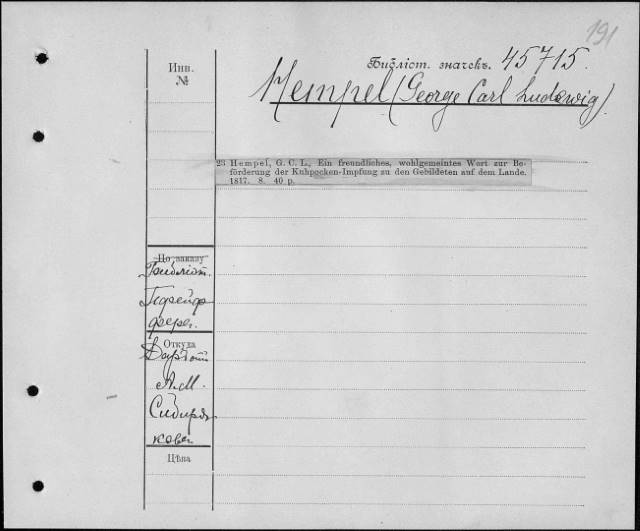 191
Инв.
№
Библіот. значекъ. 45715.
Hempel (George Carl Ludewig)
23 Hempel, G. C. L., Ein freundliches, wohlgemeintes Wort zur Be-
förderung der Kuhpocken-Impfung zu den Gebildeten auf dem Lande.
1817. 8. 40 p.
По заказу
Библіот.
Откуда
А. М.
Сибиря
кова
Цѣна